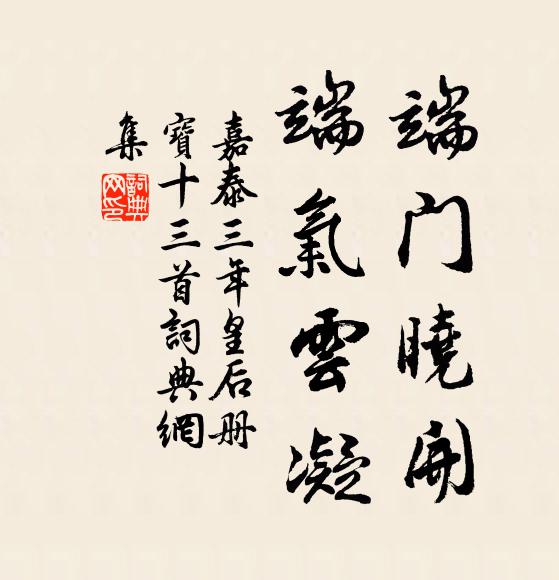 端門曉開
端氣雲凝
嘉泰三年皇后册
寶十三首詞典網
集
詞典网印